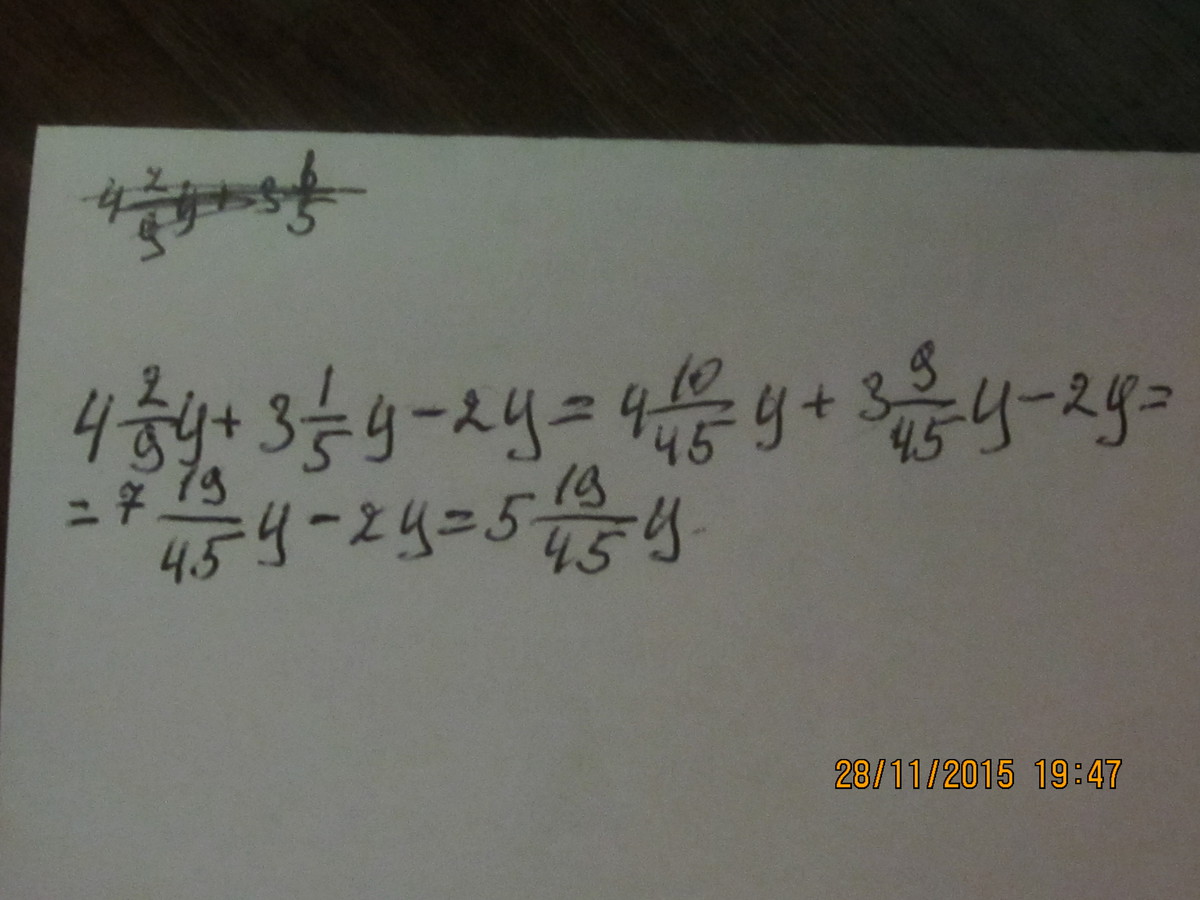 4 2/9 y + 3 6/5
4 2/9 y + 3 1/5 y - 2y = 4 10/45 y + 3 9/45 y - 2y =
= 7 19/45 y - 2y = 5 19/45 y
28/11/2015 19:47